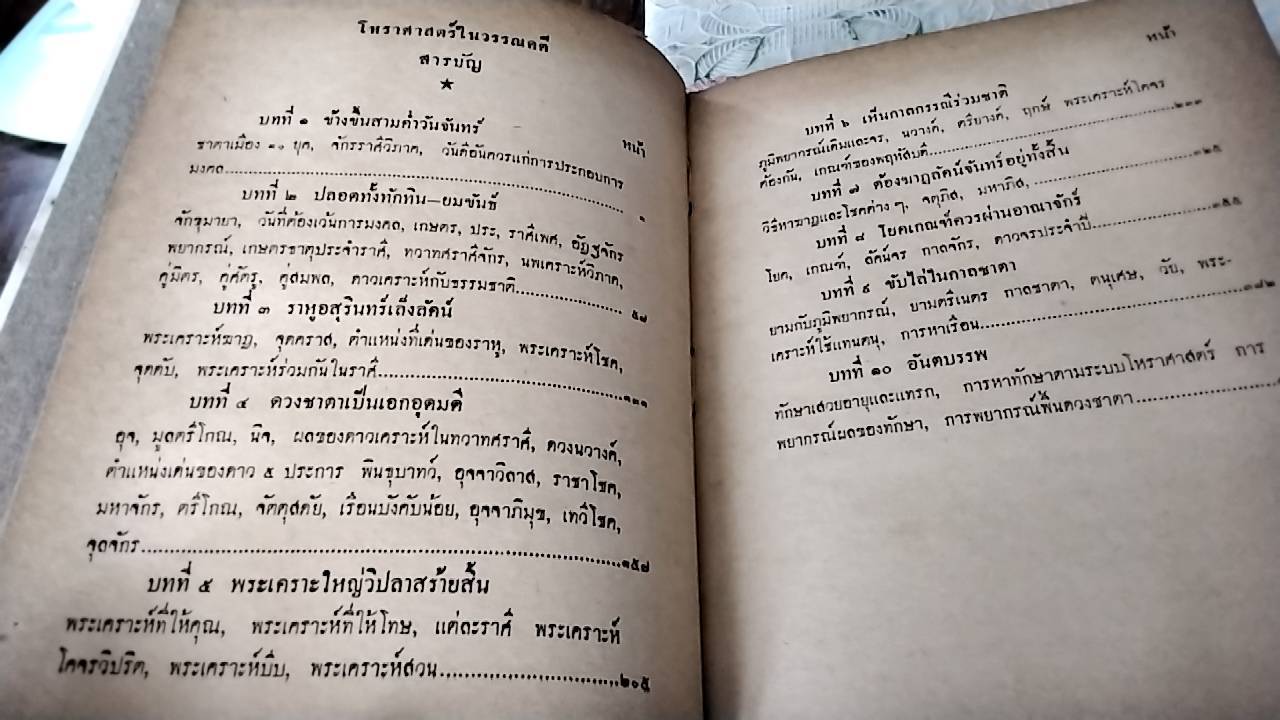 โหราศาสตร์ในวรรณคดี
สารบัญ
★
หน้า
บทที่ ๑ ข้างขึ้นสามค่ำวันจันทร์
ชาตาเมือง ๑๐ ยุค, จักรราศีวิภาค, วันดีอันควรแก่การประกอบการ
มงคล.......... ๑
บทที่ ๒ ปลอดทั้งทักทิน—ยมขันธ์
จักขุมายา, วันที่ต้องเว้นการมงคล, เกษตร, ประ, ราศีเพศ, อัฏฐจักร
พยากรณ์, เกษตรธาตุประจำราศี, ทวาทศราศีจักร, นพเคราะห์วิภาค,
คู่มิตร, คู่ศัตรู, คู่สมพล, ดาวเคราะห์กับธรรมชาติ.......... ๕๗
บทที่ ๓ ราหูอสุรินทร์เล็งลัคน์
พระเคราะห์ฆาฏ, จุดคราส, ตำแหน่งที่เด่นของราหู, พระเคราะห์โชค,
จุดดับ, พระเคราะห์ร่วมกันในราศี..........๑๓๑
บทที่ ๔ ดวงชาตาเป็นเอกอุดมดี
อุจ, มูลตรีโกณ, นิจ, ผลของดาวเคราะห์ในทวาทศราศี, ดวงนวางค์,
ตำแหน่งเด่นของดาว ๕ ประการ พินธุบาทว์, อุจจาวิลาส, ราชาโชค,
มหาจักร, ตรีโกณ, จัตตุสดัย, เรือนบังคับน้อย, อุจจาภิมุข, เทวีโชค,
จุลจักร..........๑๕๗
บทที่ ๕ พระเคราะใหญ่วิปลาสร้ายสิ้น
พระเคราะห์ที่ให้คุณ, พระเคราะห์ที่ให้โทษ, แต่ละราศี พระเคราะห์
โคจรวิปริต, พระเคราะห์บีบ, พระเคราะห์สวน..........๒๐๕
หน้า
บทที่ ๖ เห็นกาลกรณีร่วมชาติ
ภูมิพยากรณ์เดิมและจร, นวางค์, ตรียางค์, ฤกษ์ พระเคราะห์โคจร
ต้องกัน, เกณฑ์ของพฤหัสบดี..........
บทที่ ๗ ต้องฆาฏลัคน์จันทร์อยู่ทั้งสิ้น
วิธีหาฆาฏและโชคต่าง ๆ, จตุภิส, มหาภิส,..........
บทที่ ๘ โยคเกณฑ์ควรผ่านอาณาจักรี
โยค, เกณฑ์, ลัคน์จร กาลจักร, ดาวจรประจำปี..........
บทที่ ๙ ขับไล่ในกาลชาตา
ยามกับภูมิพยากรณ์, ยามตรีเนตร กาลชาตา, ตนุเศษ, วัย, พระ-
เคราะห์ใช้แทนตนุ, การหาเรือน..........
บทที่ ๑๐ อันตบรรพ
ทักษาเสวยอายุและแทรก, การหาทักษาตามระบบโหราศาสตร์ การ
พยากรณ์ผลของทักษา, การพยากรณ์พื้นดวงชาตา..........